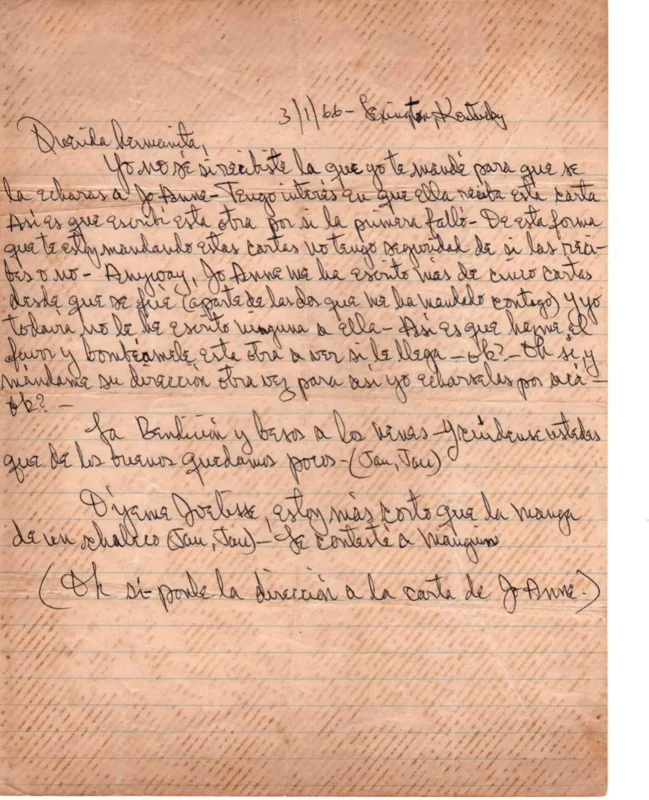 3/1/66 - Lexington, Kentucky
Querida hermanita,
Yo no sé si recibiste la que yo te mandé para que se
la echaras a Jo Anne - Tengo interés en que ella reciba esta carta
Así es que escribí esta otra por si la primera falló - De esta forma
que te estoy mandando estas cartas no tengo seguridad de si las reci-
bes o no - Anyway, Jo Anne me ha escrito más de cinco cartas
desde que se fué (aparte de las dos que me ha mandado contigo) y yo
todavía no le he escrito ninguna a ella - Así es que hazme el
favor y bombéamele esta otra a ver si le llega - ok? - Oh sí y
mándame su dirección otra vez para así yo echarselas por acá -
ok? -
La Bendición y besos a los nenes - Y cuídense ustedes
que de los buenos quedamos pocos - (Jau, Jau)
Díjeme, estoy más corto que la manga
de un chaleco (Jau, Jau) - Le contesté a
(Oh sí - ponle la dirección a la carta de Jo Anne.)